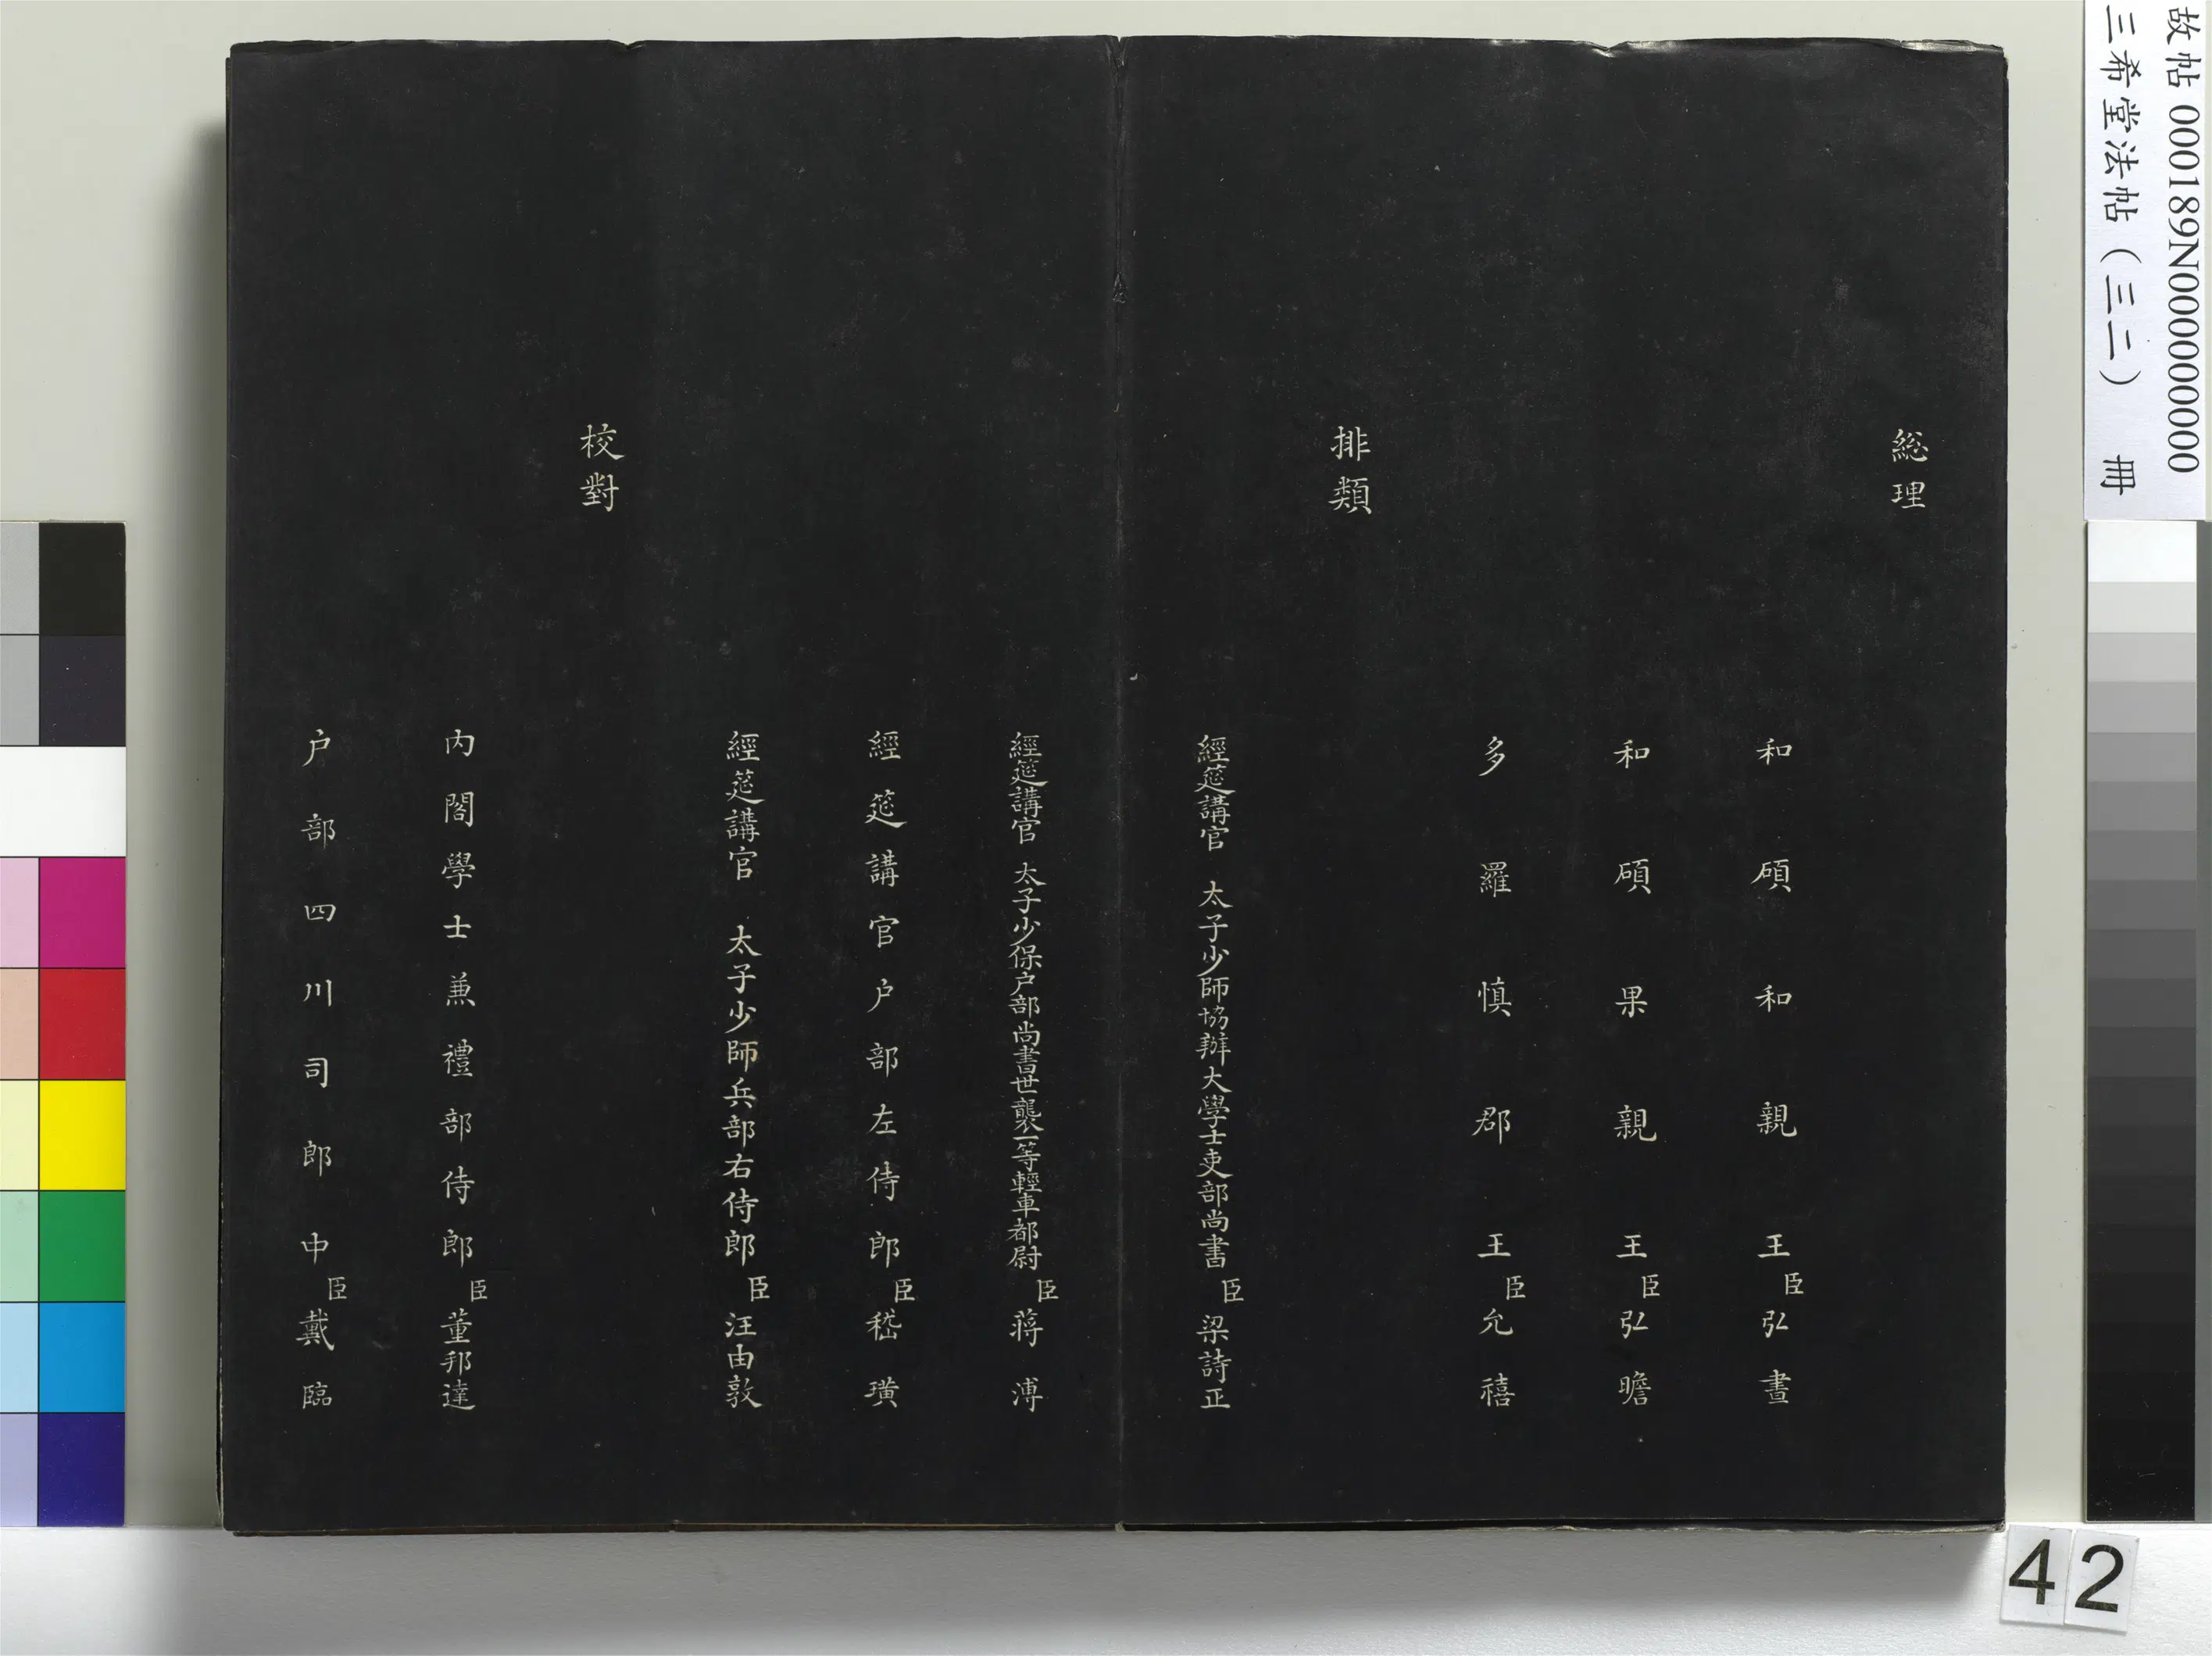 故帖 000189N000000000
三希堂法帖（三二） 冊
総理
和碩和親王臣弘晝
和碩果親王臣弘瞻
多羅慎郡王臣允禧
排類
經筵講官 太子少師協辦大學士吏部尚書臣梁詩正
經筵講官 太子少保户部尚書世襲一等輕車都尉臣蔣溥
經筵講官户部左侍郎臣嵇璜
經筵講官 太子少師兵部右侍郎臣汪由敦
校對
内閣學士兼禮部侍郎臣董邦達
户部四川司郎中臣戴臨
42